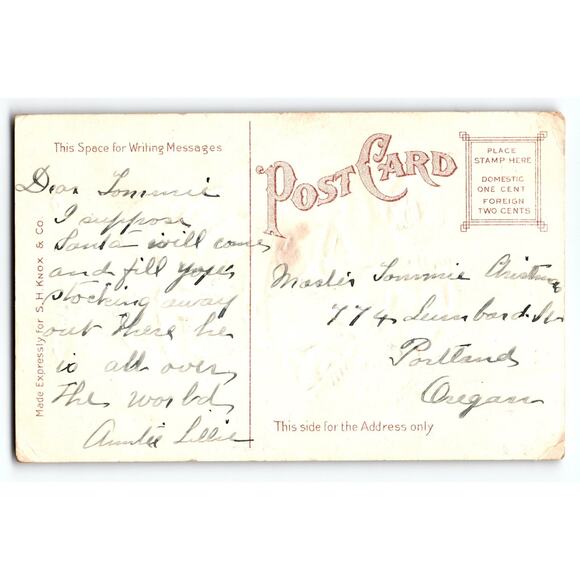 This Space for Writing Messages
POST CARD
PLACE
STAMP HERE
DOMESTIC
ONE CENT
FOREIGN
TWO CENTS
Made Expressly for S. H. KNOX & Co.
Dear Tommie
I suppose
Santa will come
and fill your
stocking away
out there he
is all over
the world
Auntie Lillie
Master Tommie
774 St
Portland
Oregon
This side for the Address only